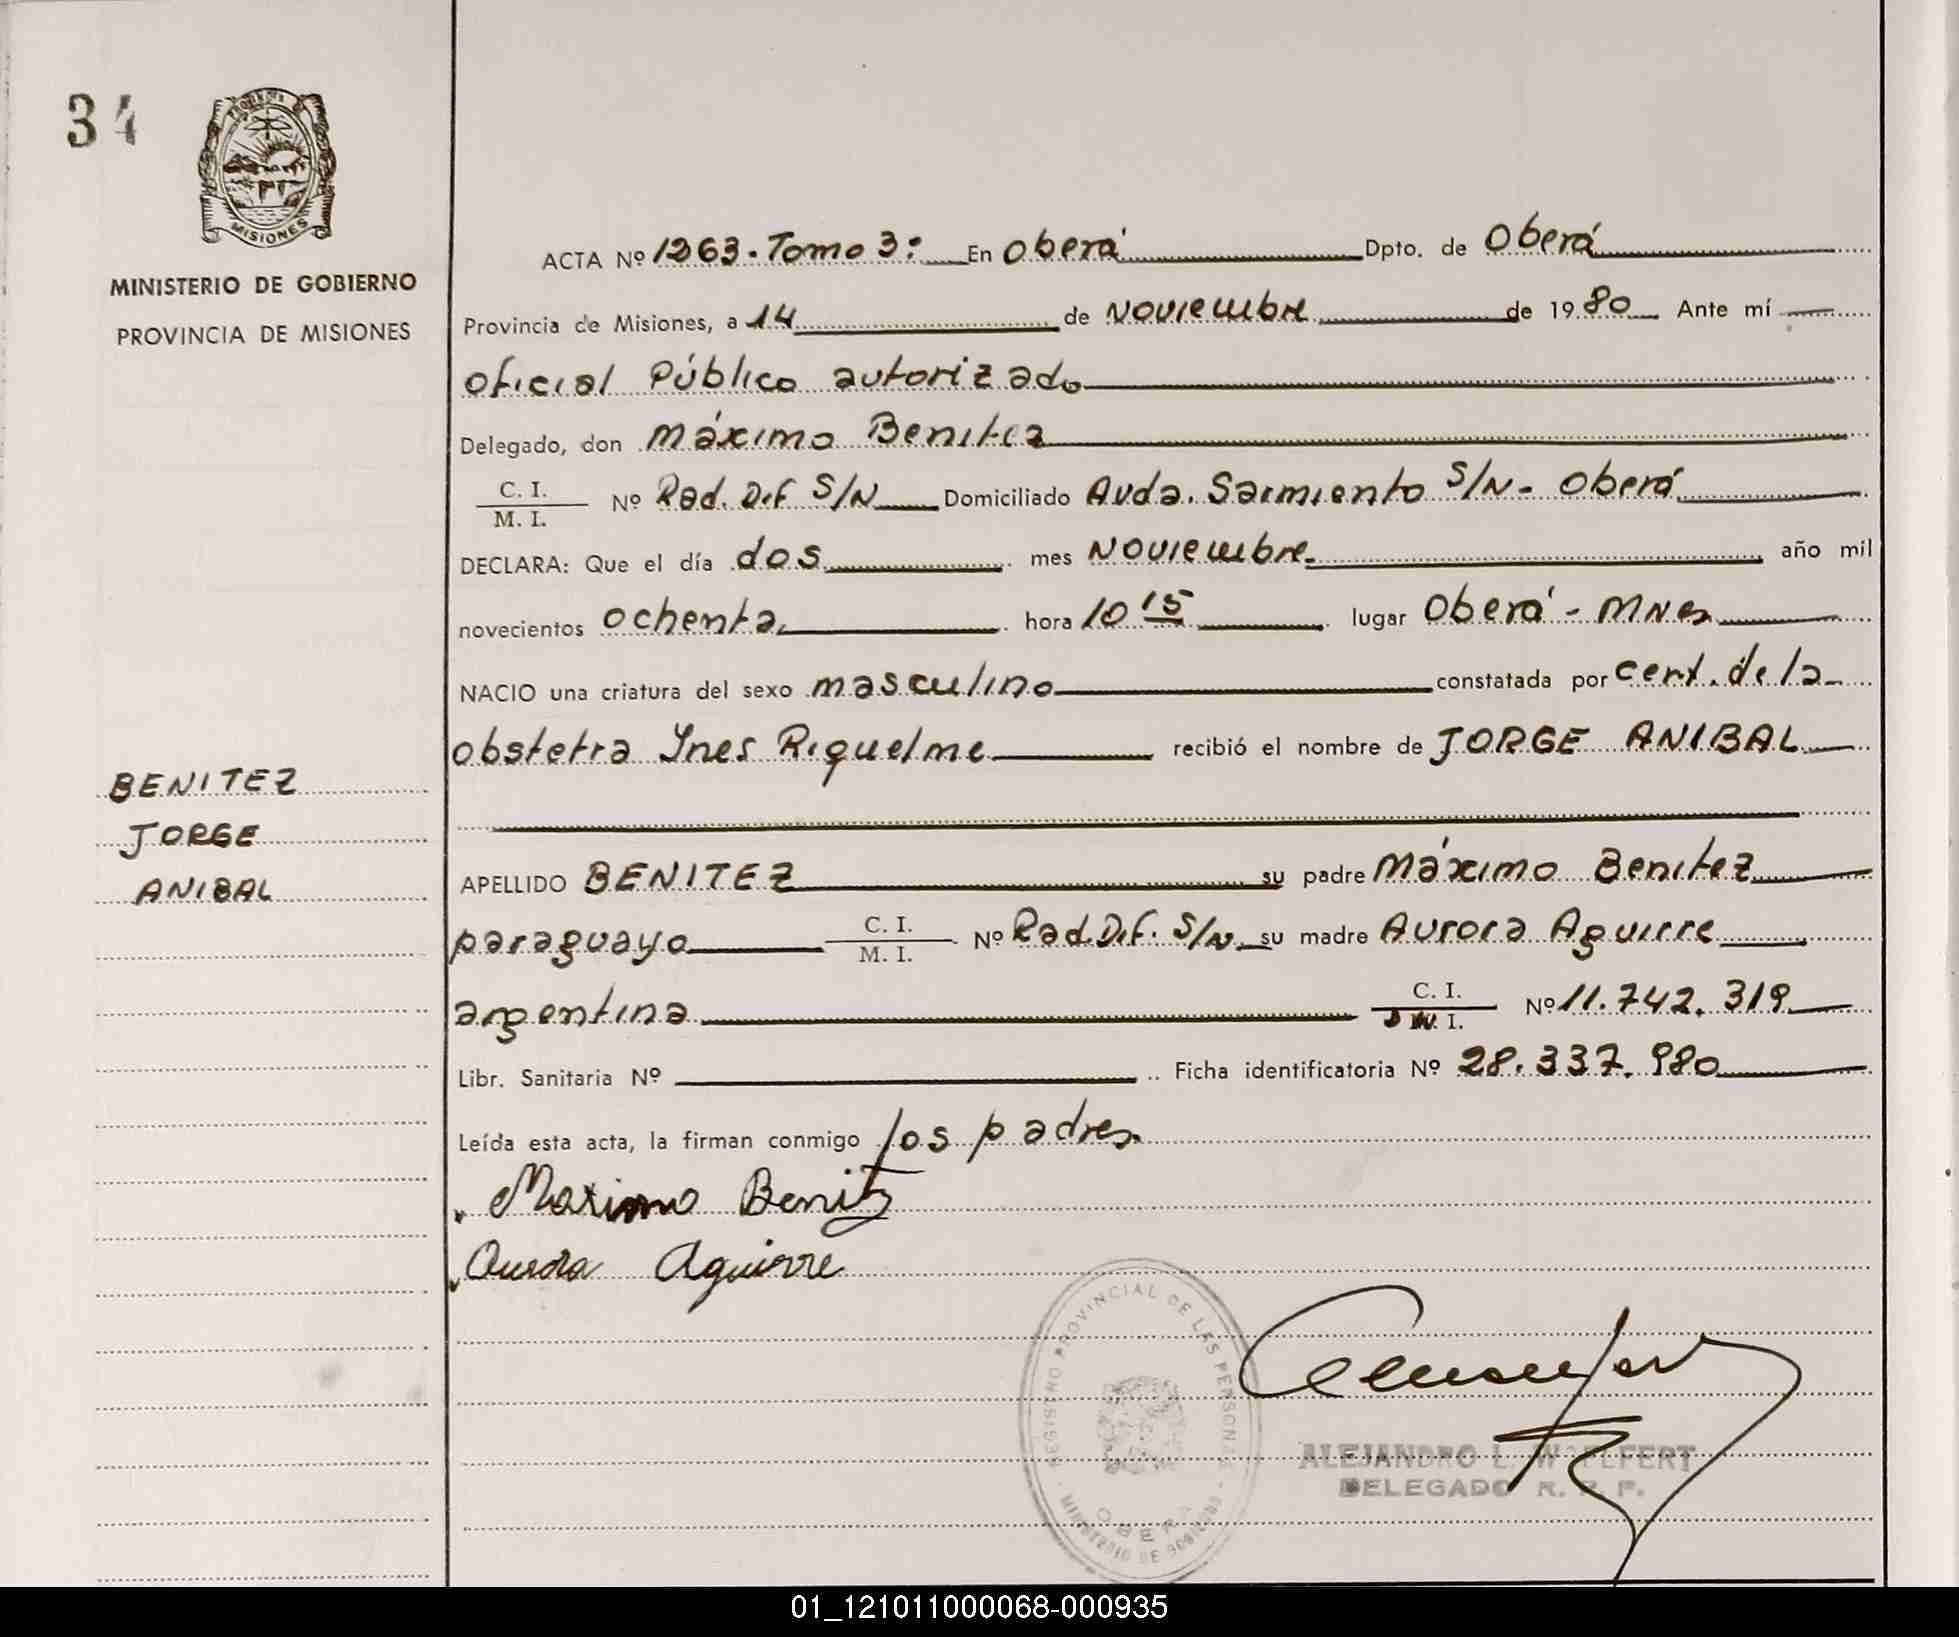 34
MISIONES
MINISTERIO DE GOBIERNO
PROVINCIA DE MISIONES
BENITEZ
JORGE
ANIBAL
ACTA Nº 1263. Tomo 3: En Oberá Dpto. de Oberá
Provincia de Misiones, a 14 de Noviembre de 1980 Ante mí
Oficial Público autorizado
Delegado, don Máximo Benitez
C. I.
M. I. Nº Rad. Dif S/N Domiciliado Avda. Sarmiento S/N - Oberá
DECLARA: Que el día dos mes Noviembre. año mil
novecientos ochenta, hora 10 15 lugar Oberá - MNes
NACIO una criatura del sexo masculino constatada por cert. de la
obstetra Ynes Riquelme recibió el nombre de JORGE ANIBAL
APELLIDO BENITEZ su padre Máximo Benitez
paraguayo C. I.
M. I. Nº Rad. Dif. S/N su madre Aurora Aguirre
argentina C. I.
I. Nº 11.742.319
Libr. Sanitaria Nº Ficha identificatoria Nº 28.337.980
Leída esta acta, la firman conmigo los padres.
Maximo Benitz
Aurora Aguirre
REGISTRO PROVINCIAL DE LAS PERSONAS
OBERA
MINISTERIO DE GOBIERNO
ALEJANDRO L.
DELEGADO R. P. P.
01_121011000068-000935